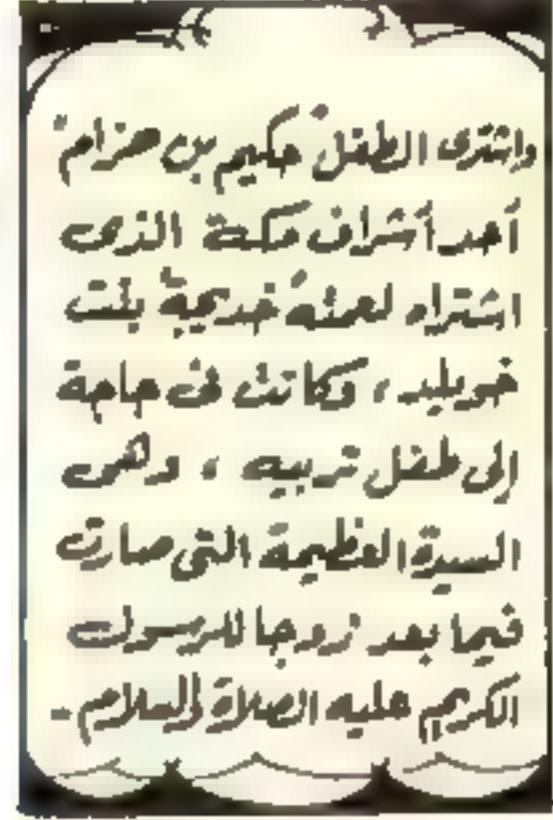 واشترى الطفل حكيم بن حزام
أحد أشراف مكة الذى
اشتراه لعمته خديجة بنت
خويلد، وكانت فى حاجة
إلى طفل تربيه، وهى
السيدة العظيمة التى صارت
فيما بعد زوجا للرسول
الكريم عليه الصلاة والسلام-